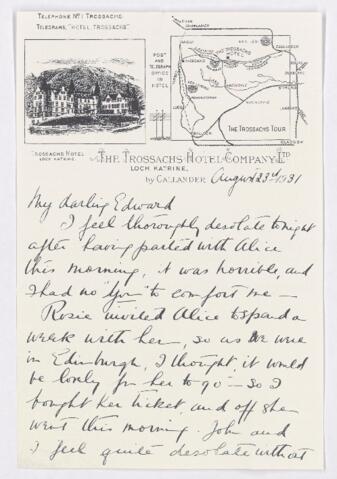 TELEPHONE Nº 1 TROSSACHS
TELEGRAMS, "HOTEL, TROSSACHS"
POST
AND
TELEGRAPH
OFFICE
IN
HOTEL
TROSSACHS
HOTEL
THE TROSSACHS TOUR
TROSSACHS HOTEL
LOCH KATRINE
THE TROSSACHS HOTEL COMPANY LTD
LOCH KATRINE,
by CALLANDER August 23rd 1931
My darling Edward
I feel thoroughly desolate tonight
after having parted with Alice
this morning, it was horrible, and
I had no "You" to comfort me —
Rosie invited Alice to spend a
week with her, so as we were
in Edinburgh, I thought it would
be lovely for her to go — so I
bought her ticket and off she
went this morning. John and
I feel quite desolate without